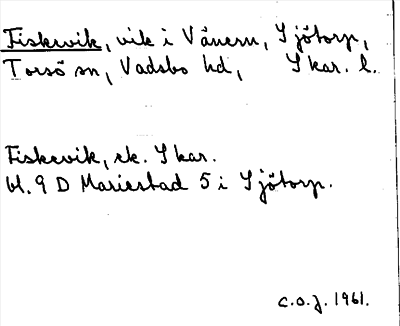 Fiskevik, vik i Vänern, Sjötorp,
Torsö sn, Vadsbo hd, Skar. l.
Fiskevik, ek. Skar.
bl. 9 D Mariestad 5 i Sjötorp.
C.O.J. 1961.